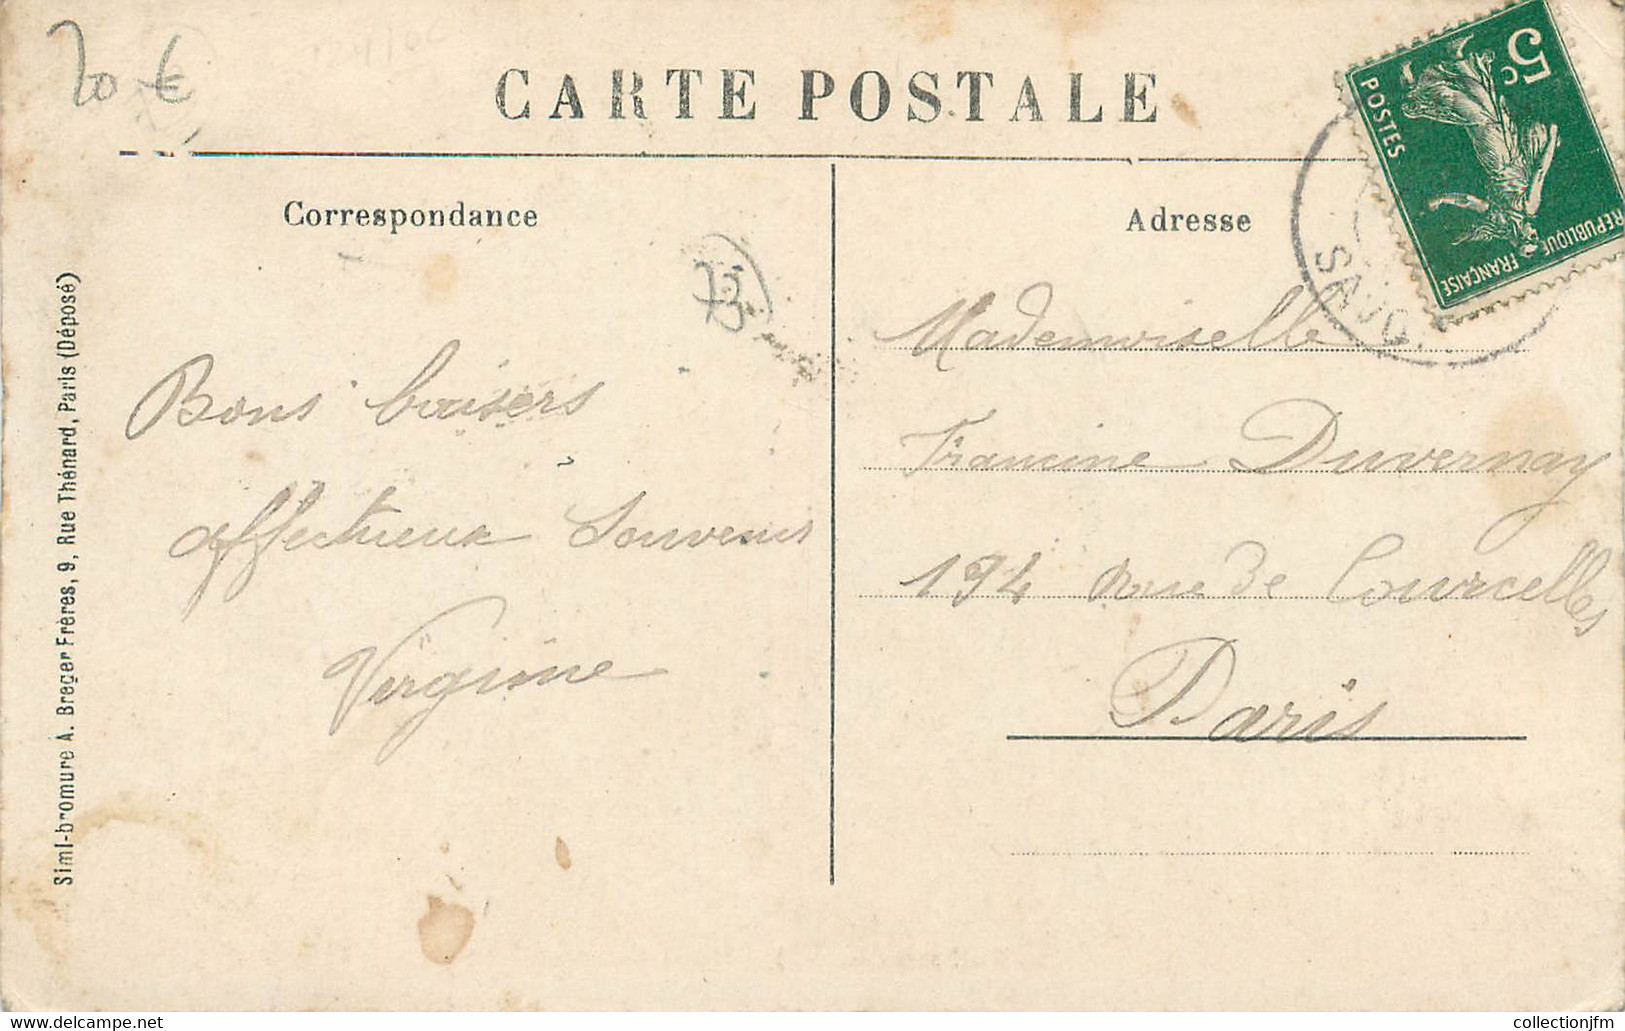 20 €
CARTE POSTALE
Correspondance
Adresse
5c
POSTES
REPUBLIQUE FRANÇAISE
SAVO
Simi-bromure A. Breger Frères, 9, Rue Thénard, Paris (Déposé)
Bons baisers
affectueux Souvenirs
Virginie
Mademoiselle
Francine Duvernay
194 Rue de Courcelles
Paris
© delcampe.net
collectionjfm